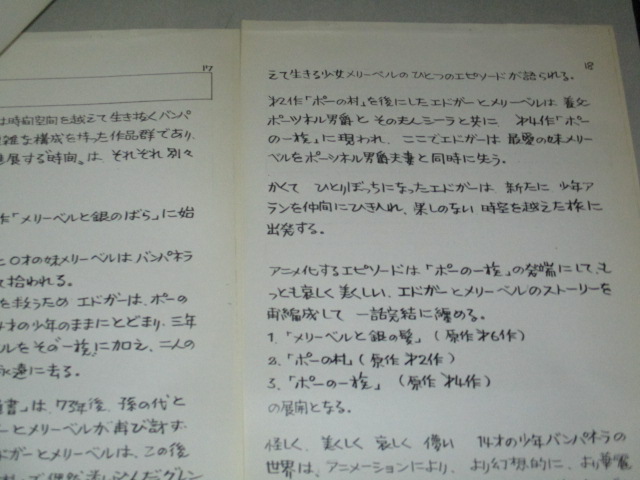 17
は時間空間を越えて生き抜くバンパ
雑な構成を持った作品群であり、
進展する「時間」は、それぞれ別々
作「メリーベルと銀のばら」に始
と0才の妹メリーベルはバンパネラ
て拾われる。
を救うため エドガーは、ポーの
4才の少年のままにとどまり、三年
ルをその一族に加え、二人の
永遠に去る。
書」は、73年後、孫の代と
ーとメリーベルが再び訪ず
ドガーとメリーベルは、この後
18
えて生きる少女メリーベルのひとつのエピソードが語られる。
才2作「ポーの村」を後にしたエドガーとメリーベルは 養父
ポーツネル男爵と その夫人シーラと共に 才4作「ポー
の一族」に現われ、ここでエドガーは 最愛の妹メリー
ベルをポーツネル男爵夫妻と同時に失う。
かくて ひとりぼっちになったエドガーは 新たに 少年ア
ランを仲間にひき入れ、果しのない 時空を越えた旅に
出発する。
アニメ化するエピソードは「ポーの一族」の発端にして、も
っとも哀しく美くしい、エドガーとメリーベルのストーリーを
再編成して 一話完結に纏める。
1.「メリーベルと銀の髪」(原作 才6作)
2.「ポーの村」(原作 才2作)
3.「ポーの一族」(原作 才4作)
の展開となる。
怪しく 美くしく 哀しく 儚い 14才の少年バンパネラの
世界は、アニメーションにより、より幻想的に、より華麗